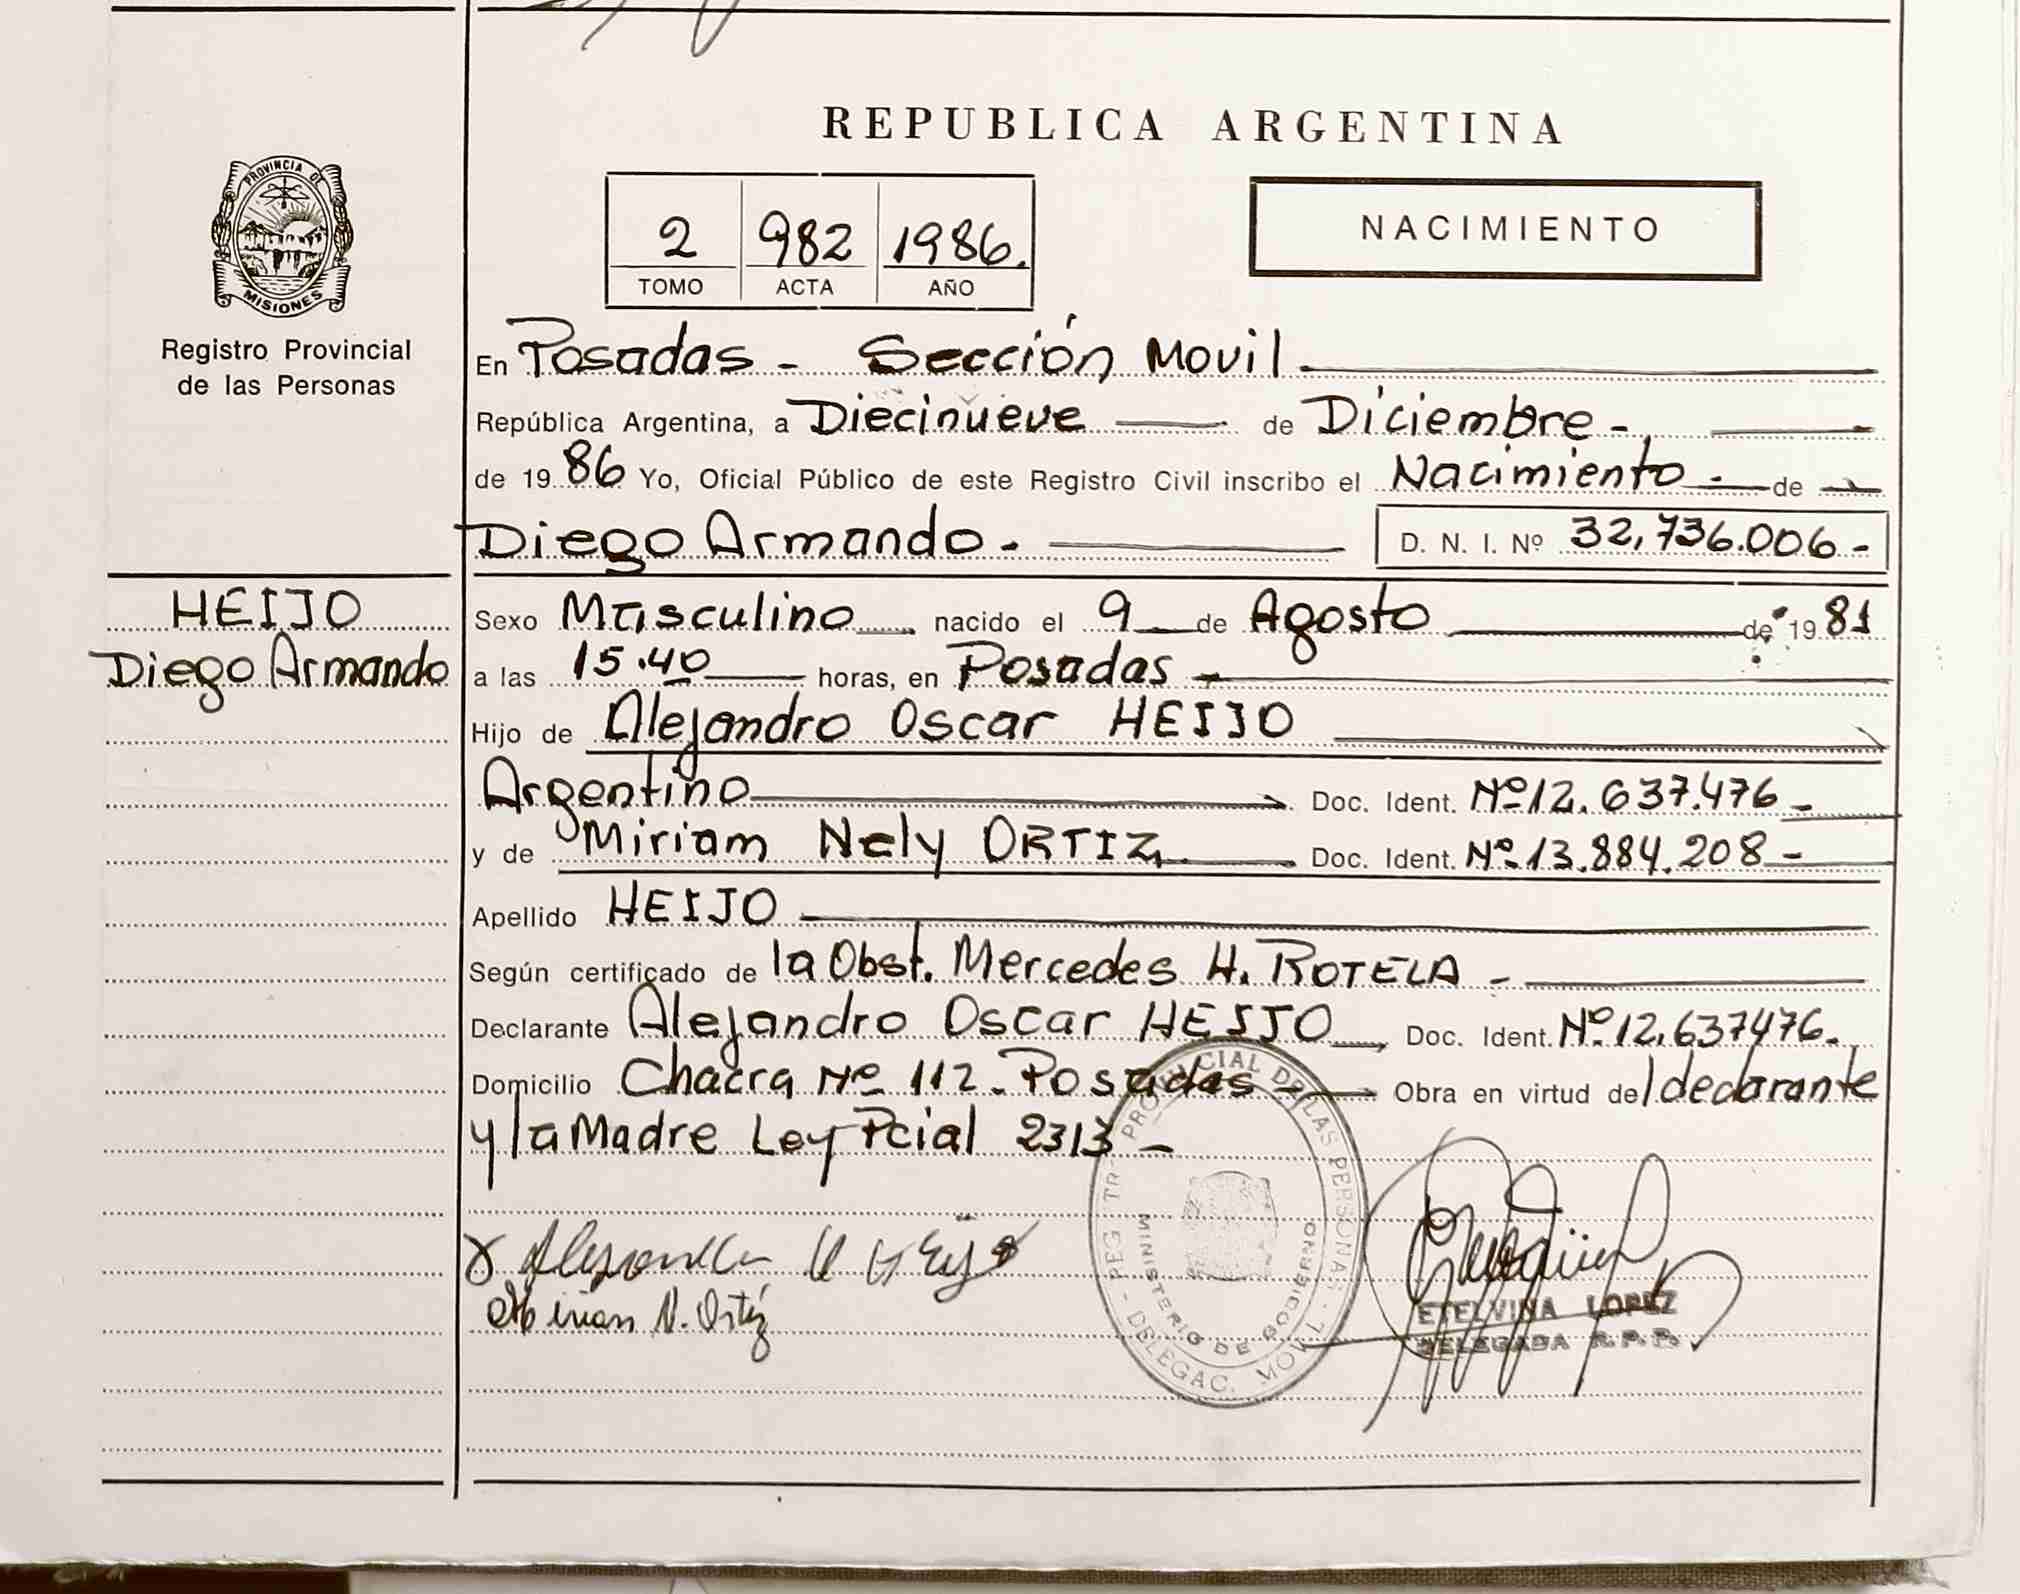 REPUBLICA ARGENTINA
PROVINCIA DE
MISIONES
Registro Provincial
de las Personas
2 982 1986.
TOMO ACTA AÑO
NACIMIENTO
En Posadas - Sección Movil
República Argentina, a Diecinueve de Diciembre -
de 1986 Yo, Oficial Público de este Registro Civil inscribo el Nacimiento - de
Diego Armando - D. N. I. Nº 32,736.006 -
HEIJO
Diego Armando
Sexo Masculino nacido el 9 de Agosto de 1981
a las 15.40 horas, en Posadas -
Hijo de Alejandro Oscar HEIJO
Argentino Doc. Ident. Nº 12.637.476 -
y de Miriam Nely ORTIZ Doc. Ident. Nº 13.884.208 -
Apellido HEIJO
Según certificado de la Obst. Mercedes H. ROTELA -
Declarante Alejandro Oscar HEIJO Doc. Ident. Nº 12,637476.
Domicilio Chacra Nº 112. Posadas Obra en virtud del declarante
y la Madre Ley Pcial 2313 -
PROVINCIAL DE LAS PERSONAS
MINISTERIO DE GOBIERNO
DELEGAC. MOVIL
N. Ortiz
ETELVINA LOPEZ
DELEGADA R.P.P.